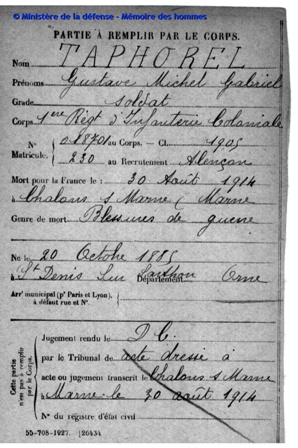 © Ministère de la défense - Mémoire des hommes
PARTIE À REMPLIR PAR LE CORPS.
Nom TAPHOREL
Prénoms Gustave Michel Gabriel
Grade Soldat
Corps 1ere Régt d'Infanterie Coloniale
N° 01870 au Corps. — Cl. 1905
Matricule. 230 au Recrutement Alençon
Mort pour la France le 30 Août 1914
à Chalons s Marne (Marne
Genre de mort Blessures de guerre
Né le 20 Octobre 1885
à St Denis Sur Sarthon Département Orne
Arrt municipal (pr Paris et Lyon),
à défaut rue et N°.
Cette partie n'est pas à remplir par le Corps.
Jugement rendu le D.C.
par le Tribunal de acte dressé à
acte ou jugement transcrit le Chalons s Marne
à Marne le 30 août 1914
N° du registre d'état civil
55-708-1927. [26434]